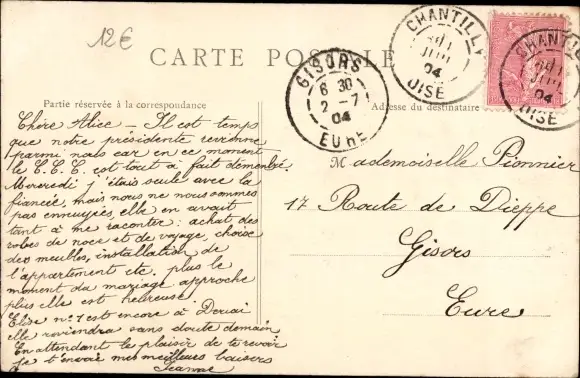 12€
CARTE POSTALE
Partie réservée à la correspondance
Adresse du destinataire
CHANTILLY
JUIL
04
OISE
CHANTILLY
JUIL
04
OISE
GISORS
6 30
2 - 7
04
EURE
Chère Alice - Il est temps
que notre présidente revienne
parmi nous car en ce moment
le C. C. C. est tout à fait démembré.
Mercredi j'étais seule avec la
fiancée, mais nous ne nous sommes
pas ennuyées, elle en avait
tant à me raconter : achat des
robes de noce et de voyage, choix
des meubles, installation de
l'appartement etc. plus le
moment du mariage approche
plus elle est heureuse.
Elise n°1 est encore à Douai
elle reviendra sans doute demain
En attendant le plaisir de te revoir
je t'envoie mes meilleurs baisers
Jeanne
Mademoiselle Pionnier
17 Route de Dieppe
Gisors
Eure